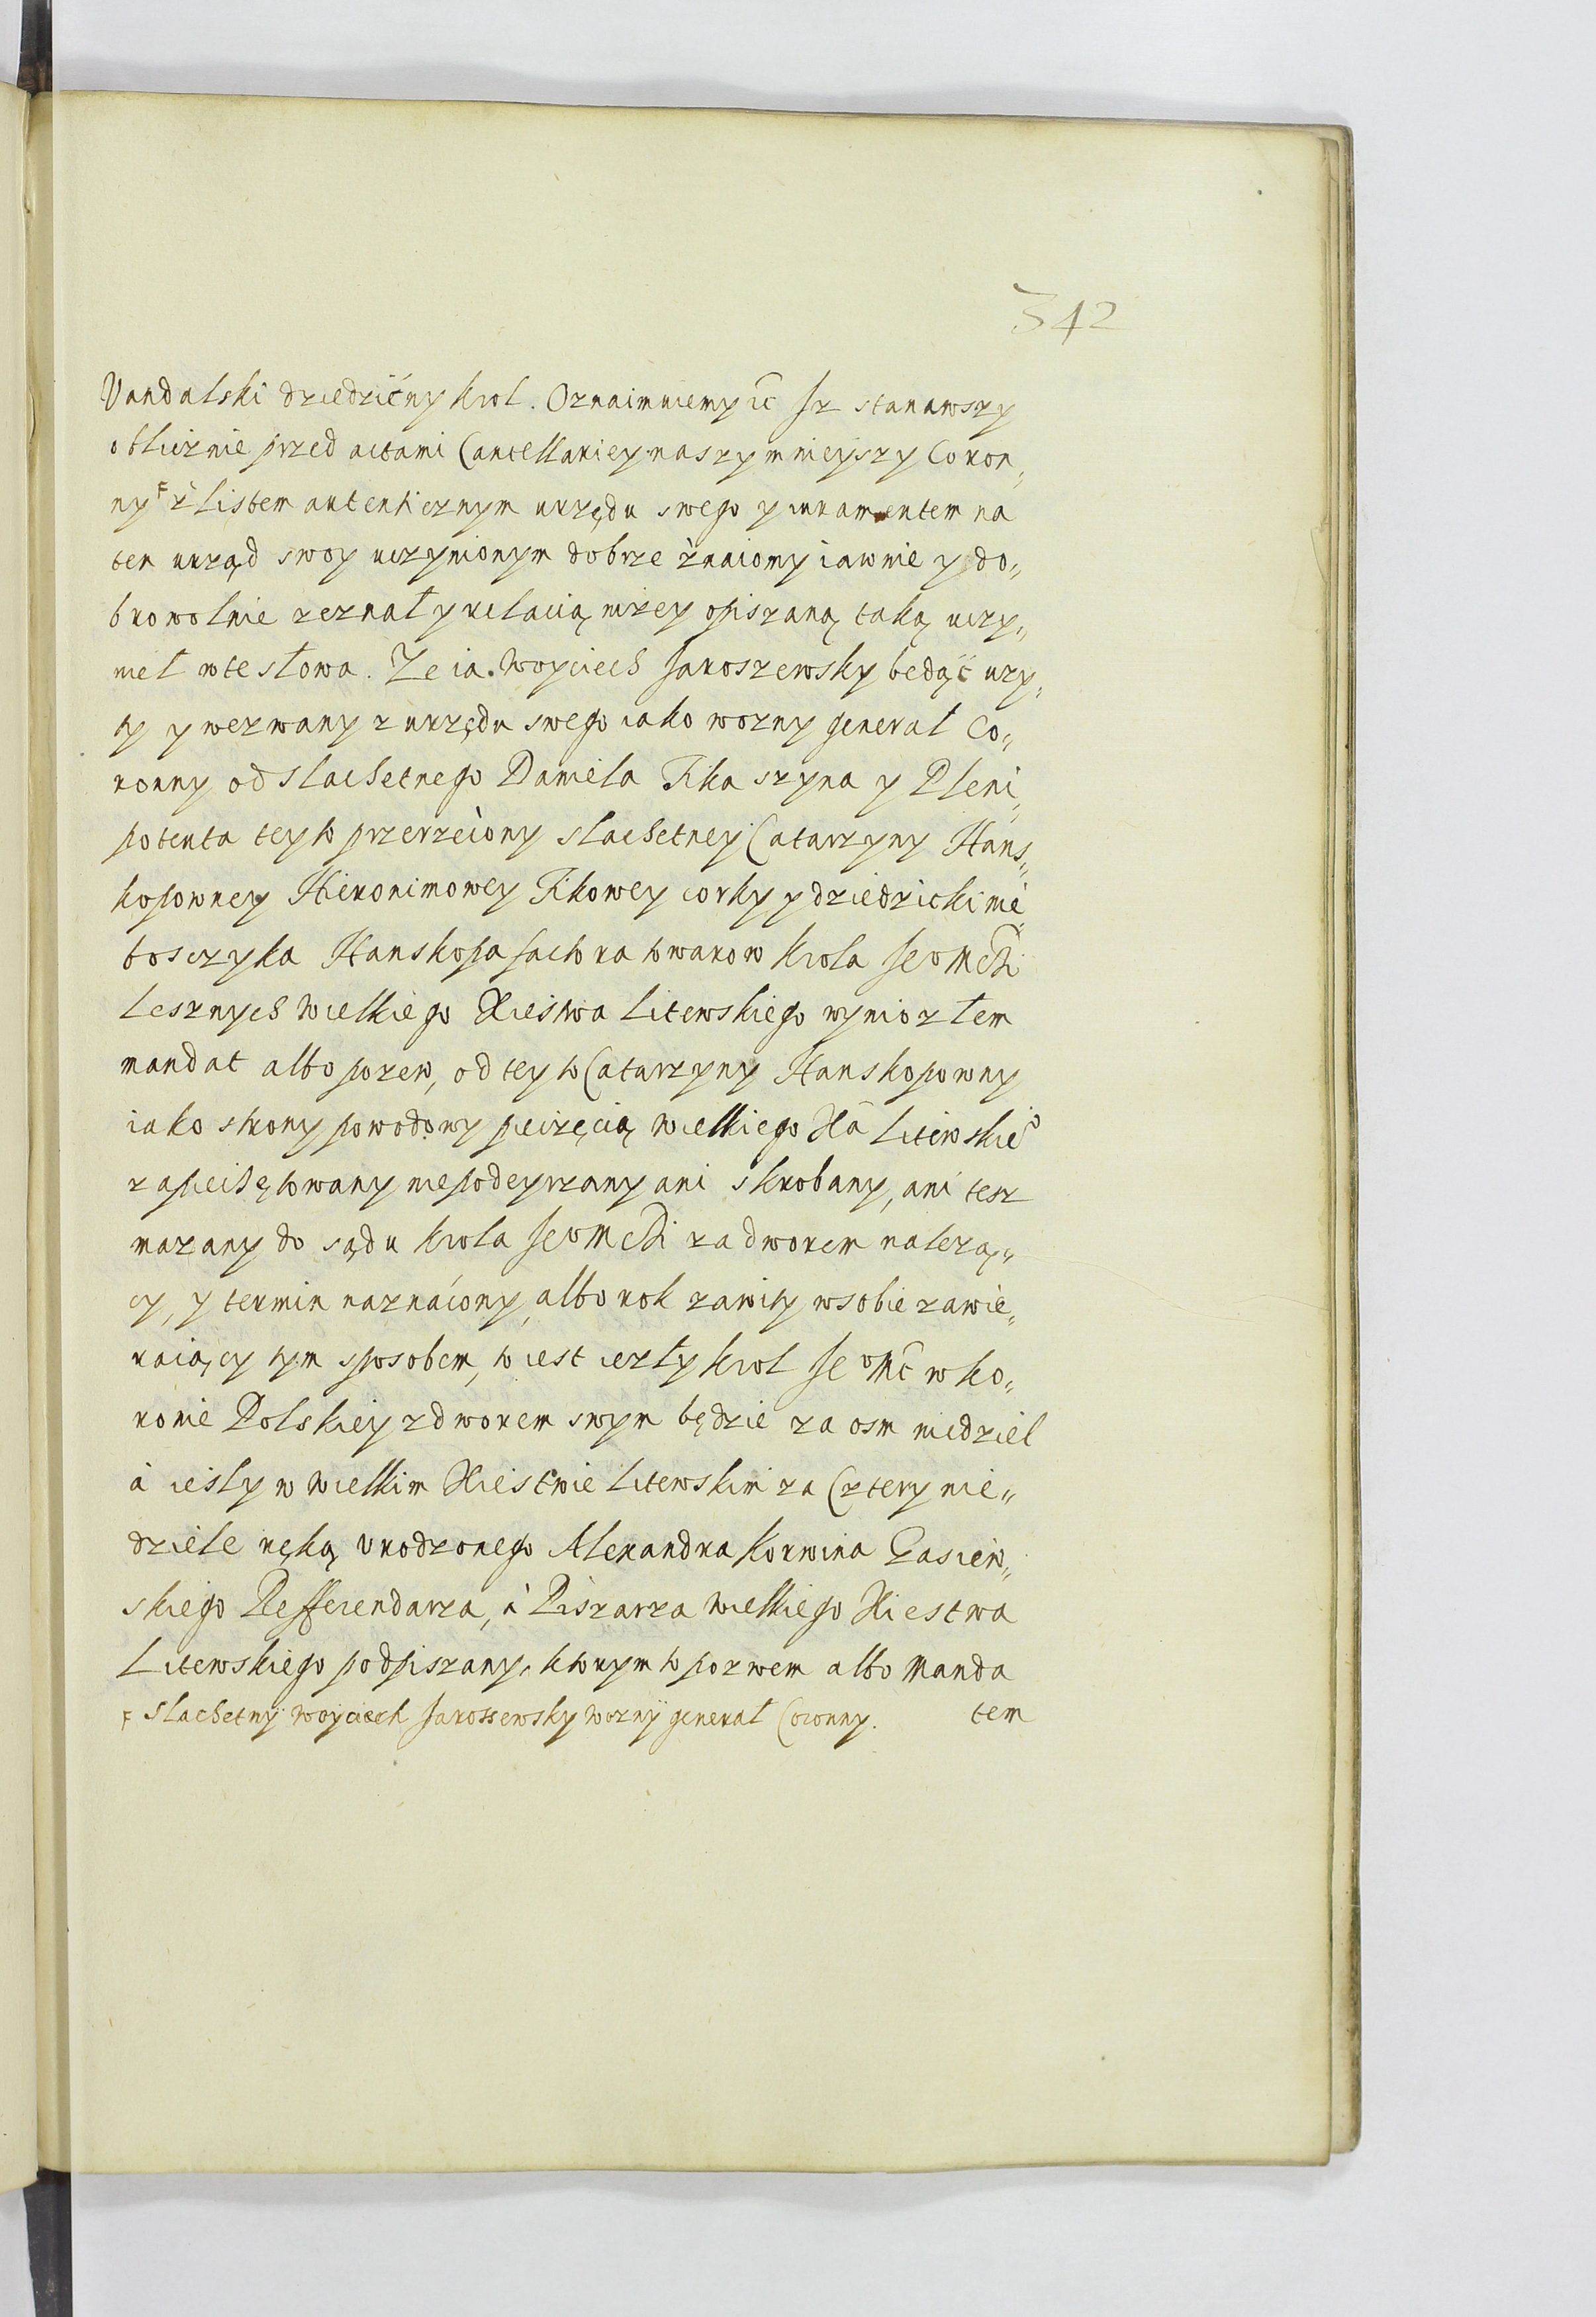 342
Vandalski dziedzićny krol. Oznaimuiemy ić Jz stanawszy
obliiznie przed actami Cancellariey naszy mnieyszy Coron„
ny F z Listem autenticznym urzędu swego y iuramentem na
ten urząd swoy uczynionym dobrze znaiomy iawnie y do„
browolnie zeznał y relacią nizey opiszaną taką uczy„
nieł wte słowa. Ze ia. Woyciech Jaroszewsky bedąć uzy„
ty y wezwany z urzędu swego iako wozny generał Co„
ronny od slachetnego Daniela Fika szyna y Pleni„
potenta teyto przerzeciony slachetney Catarzyny Hans„
kopowney Hieronimowey Fikowey corky y dziedzicki nie„
bosczyka Hanskopa factora towarow krola Jeo Mchi
Lesznych Wielkiego Xiestwa Litewskiego wyniozłem
mandat albo pozew, od teyto Catarzyny Hanskopowny
iako strony powodowy pieczęcią Wielkiego Xa Litewskieo
zapieczętowany niepodeyrzany ani skrobany, ani tesz
mazany do sądu krola Jeo Mchi za dworem nalezą„
cy, y termin naznaciony, albo rok zawity w sobie zawie„
raiący tym sposobem, to iest iezly krol Jeo Mć w ko„
ronie Polskiey z dworem swym będzie za osm niedziel
à iesly w Wielkim Xiestwie Litewskim za Cztery nie„
dziele ręką Urodzonego Alexandra Korwina Gasiew„
skiego Refferendarza, à Piszarza Wielkiego Xiestwa
Litewskiego podpiszany, ktorym to pozwem albo Manda
tem
F Slachetny Woyciech Jarossewsky Wozny generał Coronny.